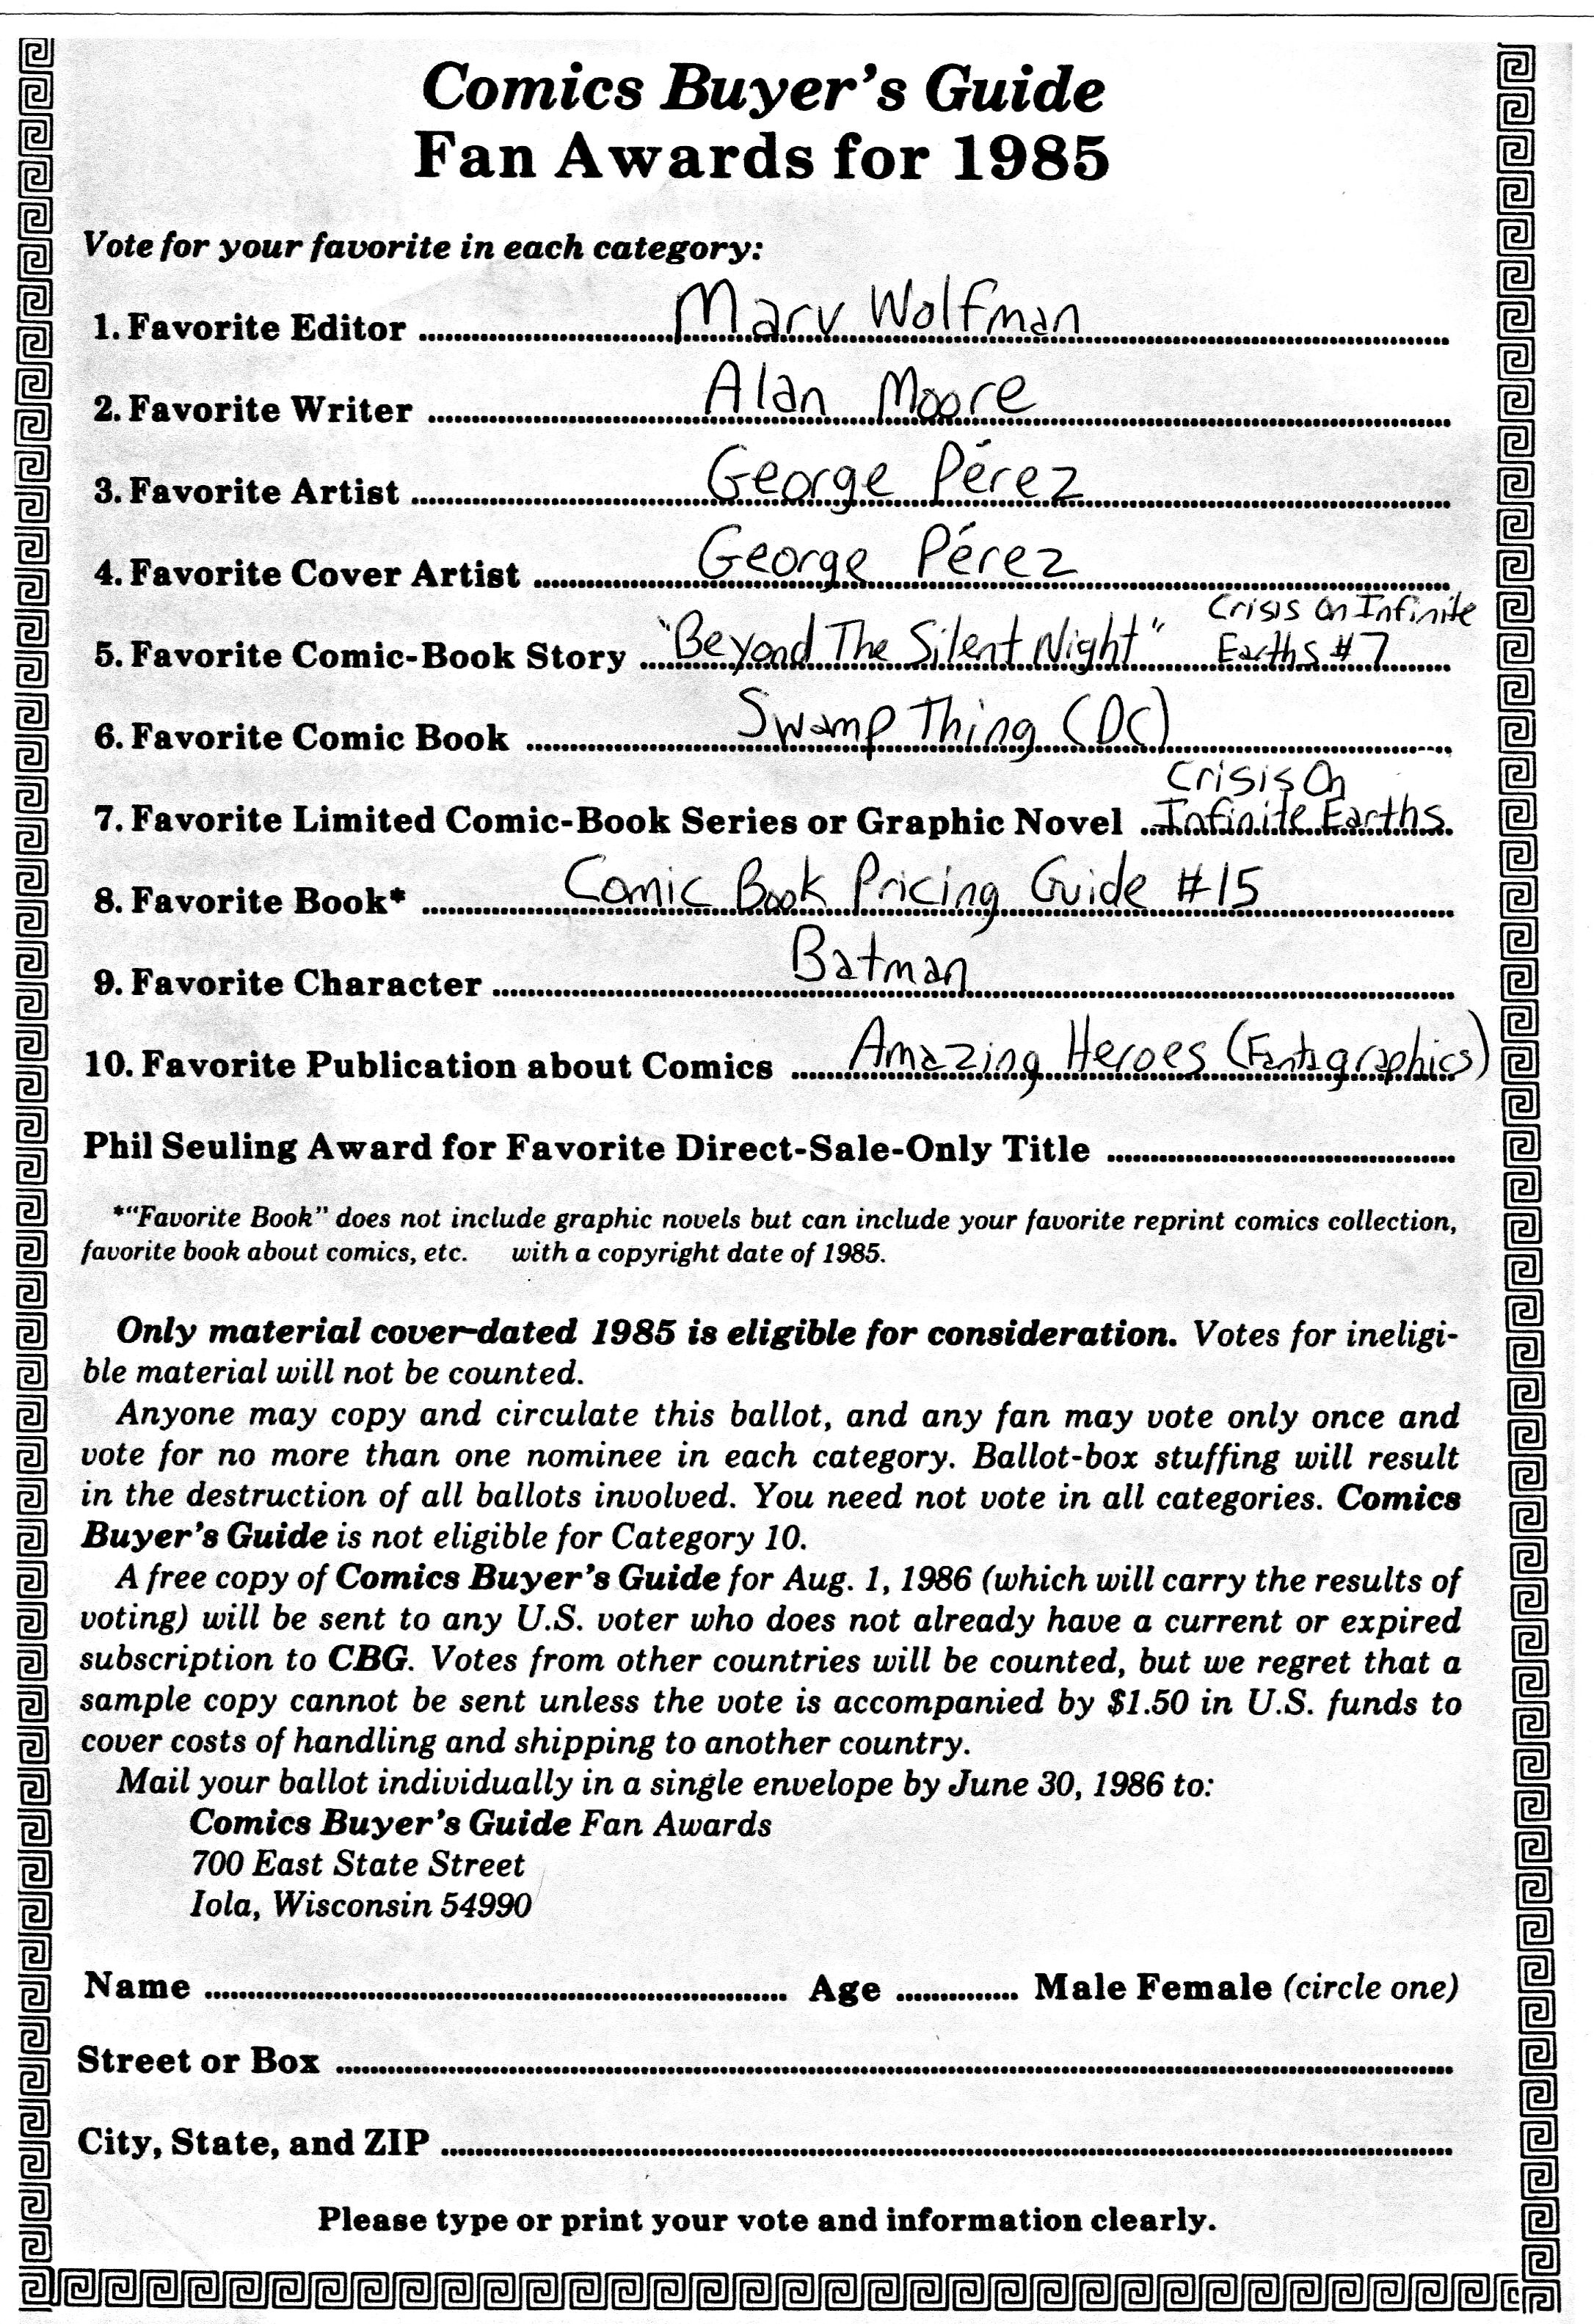 Comics Buyer's Guide
Fan Awards for 1985
Vote for your favorite in each category:
1. Favorite Editor ........ Marv Wolfman
2. Favorite Writer ........ Alan Moore
3. Favorite Artist ........ George Pérez
4. Favorite Cover Artist ........ George Pérez
5. Favorite Comic-Book Story ........ "Beyond The Silent Night" Crisis On Infinite
Earths #7
6. Favorite Comic Book ........ Swamp Thing (DC)
Crisis On
7. Favorite Limited Comic-Book Series or Graphic Novel ... Infinite Earths
8. Favorite Book* ........ Comic Book Pricing Guide #15
9. Favorite Character ........ Batman
10. Favorite Publication about Comics ........ Amazing Heroes (Fantagraphics)
Phil Seuling Award for Favorite Direct-Sale-Only Title ........
*"Favorite Book" does not include graphic novels but can include your favorite reprint comics collection,
favorite book about comics, etc. with a copyright date of 1985.
Only material cover-dated 1985 is eligible for consideration. Votes for ineligi-
ble material will not be counted.
Anyone may copy and circulate this ballot, and any fan may vote only once and
vote for no more than one nominee in each category. Ballot-box stuffing will result
in the destruction of all ballots involved. You need not vote in all categories. Comics
Buyer's Guide is not eligible for Category 10.
A free copy of Comics Buyer's Guide for Aug. 1, 1986 (which will carry the results of
voting) will be sent to any U.S. voter who does not already have a current or expired
subscription to CBG. Votes from other countries will be counted, but we regret that a
sample copy cannot be sent unless the vote is accompanied by $1.50 in U.S. funds to
cover costs of handling and shipping to another country.
Mail your ballot individually in a single envelope by June 30, 1986 to:
Comics Buyer's Guide Fan Awards
700 East State Street
Iola, Wisconsin 54990
Name ........ Age ........ Male Female (circle one)
Street or Box ........
City, State, and ZIP ........
Please type or print your vote and information clearly.